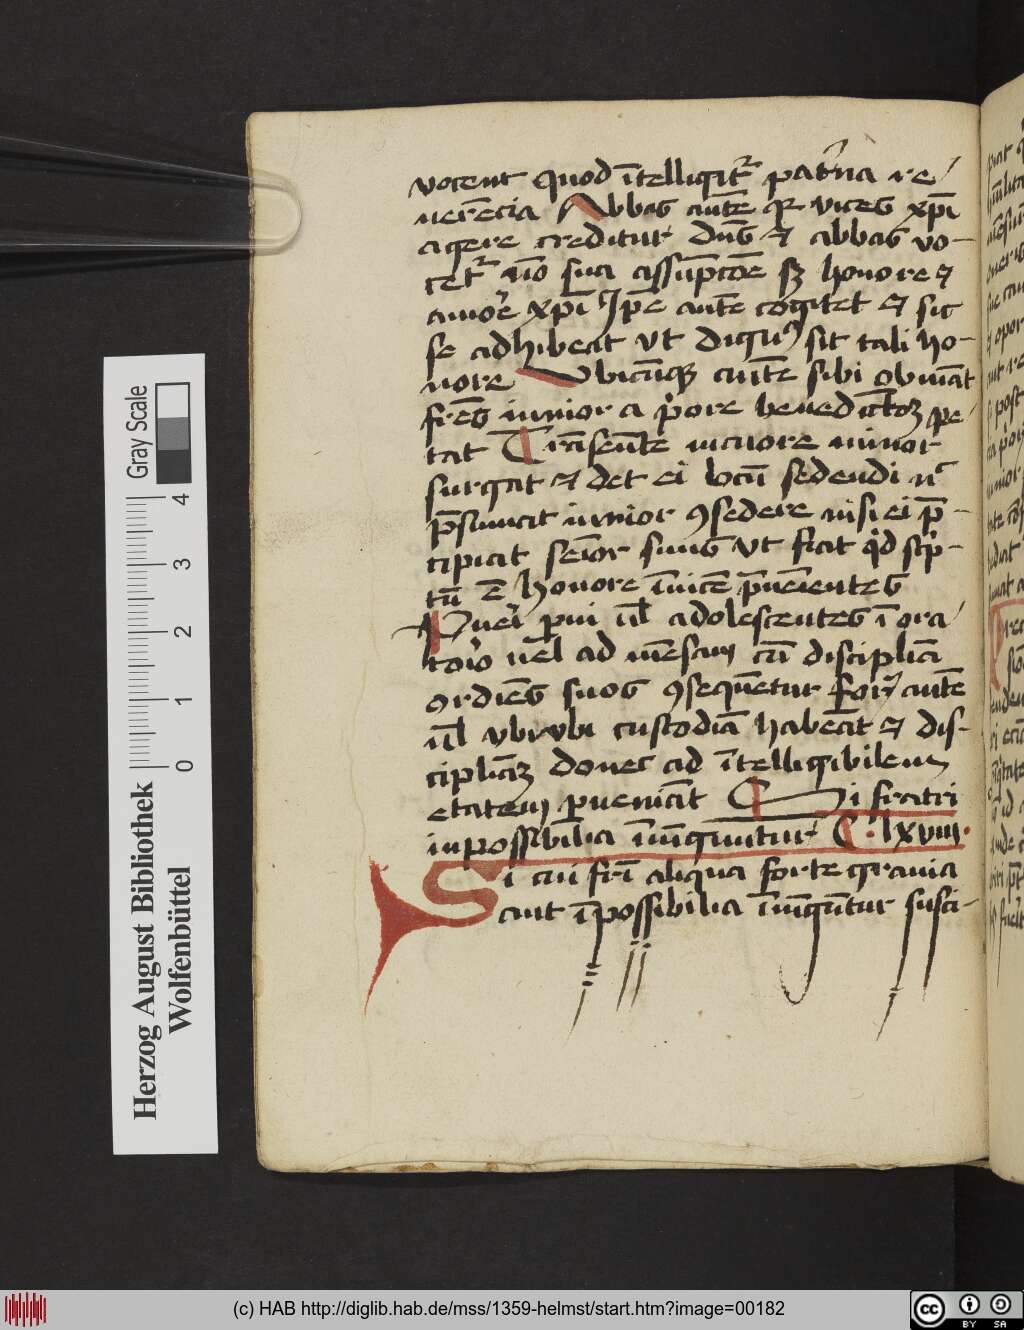 vocent quod ītelligit᷑ pat̾na re/
uerēcia Abbas autē qꝛ vices xp̄i
agere creditur dn̄s ⁊ abbas vo-
cet᷑ nō sua assūpcōe sꝫ honore ⁊
amore xp̄i Ip̄e autē cogitet ⁊ sic
se adhibeat vt dignꝰ sit tali ho-
nore Vbicūqꝫ autē sibi obuiāt
frēs iunior a p̓ore benedictōꝫ pe-
tat Trāseūte maiore minor
surgat ⁊ det ei locū sedendi nͨ
p̄sumat iunior ꝯsedere nisi ei p̄-
cipiat seīor suus vt fiat qd̓ scp̓-
tū ē honore īuicē p̄uenientes
Pueri p̱ui ul̄ adolescentes ī ora/
torio uel ad mēsam cū disciplīa
ordīes suos ꝯsequētur foris autē
ul̄ vbivbi custodiā habeāt ⁊ dis-
ciplīaꝫ donec ad ītelligibilem
etatem p̱ueniāt Si fratri
inpossibilia iniūguntur C. lxviii.
Si cui frī aliqua forte grauia
aut īpossibilia iniūgūtur susci-
Gray Scale
0 1 2 3 4
Herzog August Bibliothek
Wolfenbüttel
(c) HAB http://diglib.hab.de/mss/1359-helmst/start.htm?image=00182
cc BY SA